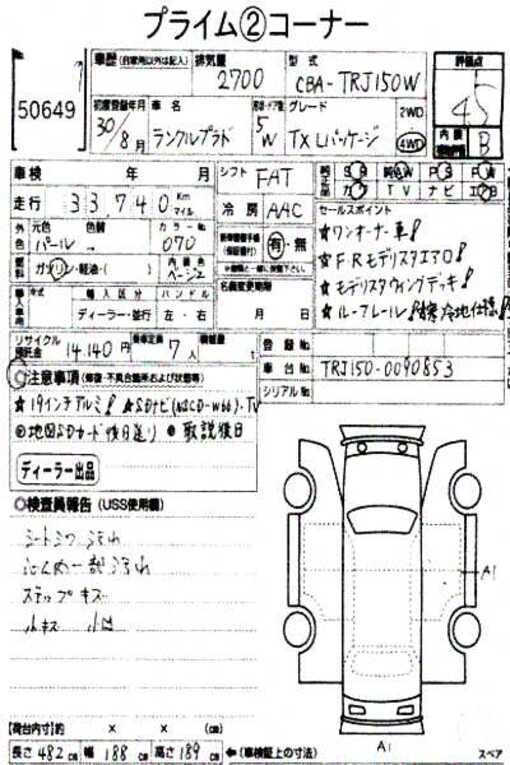 プライム②コーナー
No
50649
車歴 (自家用以外は記入)
排気量 2700
型式 CBA-TRJ150W
評価点 4.5
初度登録年月 30/8月
車名 ランクルプラド
型・ドア数 5W
グレード TX Lパッケージ
2WD
4WD
内装 B
車検 年 月
シフト FAT
純正部品 SR AW PS PW
カワ TV ナビ エアB
走行 33,740 Km マイル
冷房 AAC
セールスポイント
外色 元色 パール 色替 カラーNo 070
有・無
★ワンオーナー車!
★F・Rモデリスタエアロ!
燃料 ガソリン・軽油・( ) 内装色 ベージュ
名義変更期限
★モデリスタウィングデッキ!
輸入車 年式 輸入区分 ハンドル
ディーラー・並行 左・右
月 日
★ルーフレール!★寒冷地仕様!
リサイクル預託金 14,140円 乗車定員 7人 積載量 t
登録No
車台No TRJ150-0090853
シリアルNo
◎注意事項 (修復・不具合箇所および状態等)
★19インチアルミ! ★SDナビ(NSCD-W66)・TV
◎地図SDカード後日送り ●取説後日
ディーラー出品
◎検査員報告 (USS使用欄)
シートシワ 汚れ
内張一部汚れ
ステップキズ
小キズ 小凹
A1
A1
【荷台内寸】約 × × (cm)
長さ 482 cm 幅 188 cm 高さ 189 cm ←(車検証上の寸法)
スペア